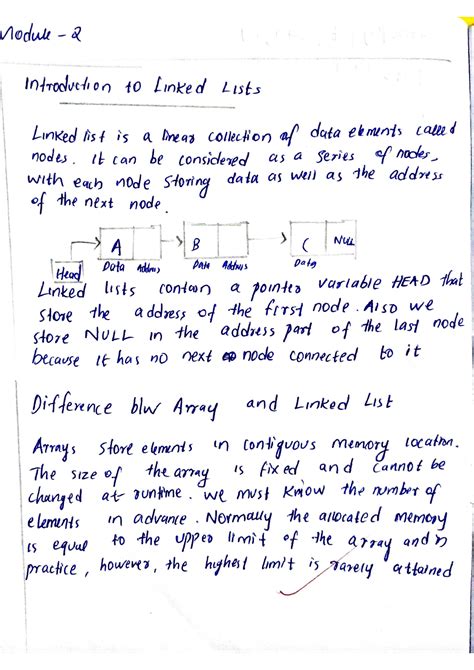 Module - 2
Introduction to Linked Lists
Linked list is a linear collection of data elements called
nodes. It can be considered as a series of nodes,
with each node storing data as well as the address
of the next node.
A B C NULL
Head Data Address Data Address Data
Linked lists contain a pointer variable HEAD that
store the address of the first node. Also we
store NULL in the address part of the last node
because it has no next node connected to it
Difference b/w Array and Linked List
Arrays store elements in contiguous memory location.
The size of the array is fixed and cannot be
changed at runtime. We must know the number of
elements in advance. Normally the allocated memory
is equal to the upper limit of the array and in
practice, however, the highest limit is rarely attained